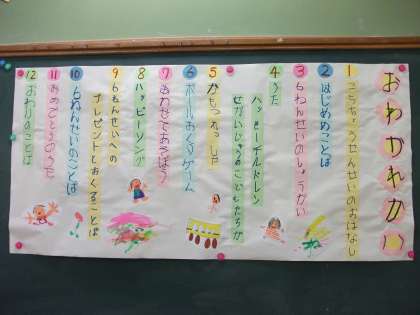 おわかれかい
1 こうちょうせんせいのおはなし
2 はじめのことば
3 6ねんせいのしょうかい
4 うた
ハッピーチルドレン
せかいじゅうのこどもたちが
5 かもつれっしゃ
6 ボールおくりゲーム
7 あわせてあそぼう
8 ハッピーソング
9 6ねんせいへの
プレゼントとおくることば
10 6ねんせいのことば
11 おめでとうのうた
12 おわりのことば